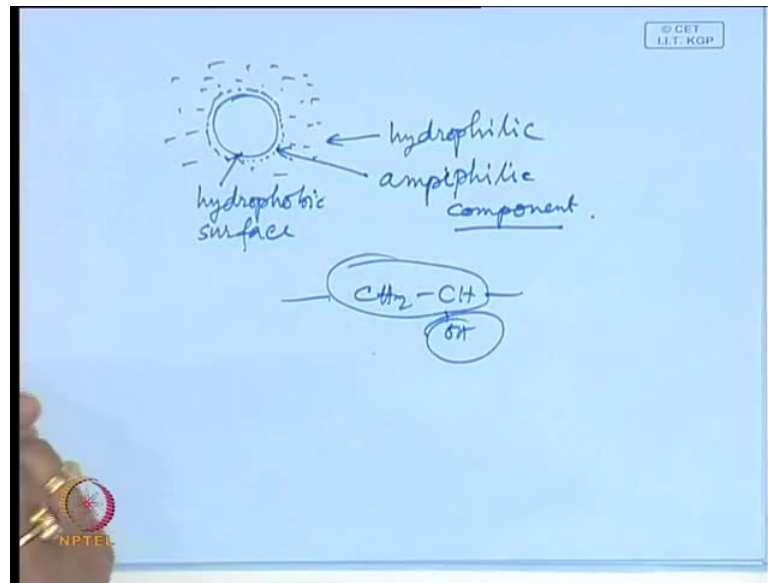 © CET
I.I.T. KGP
hydrophilic
ampiphilic
component.
hydrophobic
surface
CH2-CH
OH
NPTEL